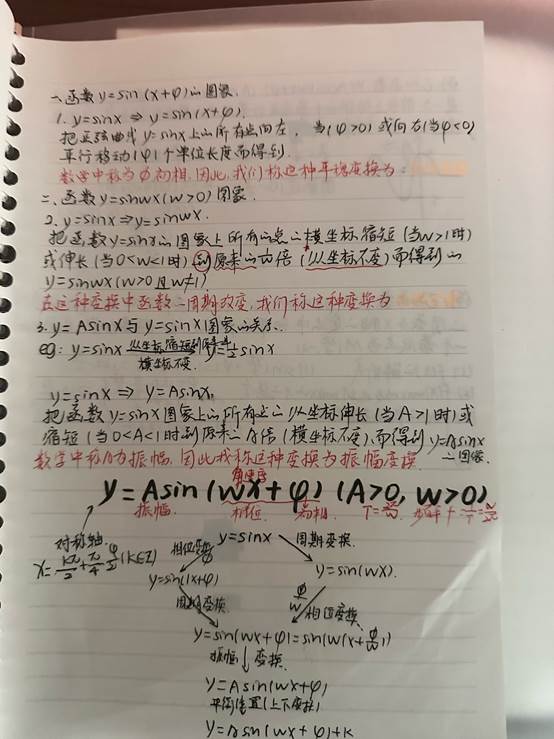 一、函数y=sin(x+φ)的图象.
1. y=sinx ⇒ y=sin(x+φ).
把正弦曲线y=sinx上的所有点向左, 当(φ>0)或向右(当φ<0)
平行移动|φ|个单位长度而得到.
数学中称为φ初相, 因此, 我们称这种平移变换为:
二、函数y=sinwx(w>0)图象.
2. y=sinx ⇒ y=sinwx.
把函数y=sinx的图象上所有的点的横坐标缩短(当w>1时)
或伸长(当0<w<1时)到原来的 倍(纵坐标不变)而得到的
y=sinwx(w>0且w≠1)
在这种变换中函数的周期改变, 我们称这种变换为
3. y=Asinx与y=sinx图象的关系.
eg: y=sinx 纵坐标缩短到 y=½sinx
横坐标不变.
y=sinx ⇒ y=Asinx,
把函数y=sinx图象上的所有点的纵坐标伸长(当A>1时)或
缩短(当0<A<1时到原来的A倍(横坐标不变),而得到y=Asinx
数学中称A为振幅, 因此我称这种变换为振幅变换 的图象.
角速度
y=Asin(wx+φ)(A>0,w>0).
振幅. 相位 初相.
对称轴
y=sinx 周期变换.
相位变换
y=sin(x+φ) y=sin(wx).
周期变换. φ/w 相位变换.
y=sin(wx+φ)=sin(w(x+φ/w))
振幅↓变换.
y=Asin(wx+φ)
平衡位置(上下变换)
y=Asin(wx+φ)+k